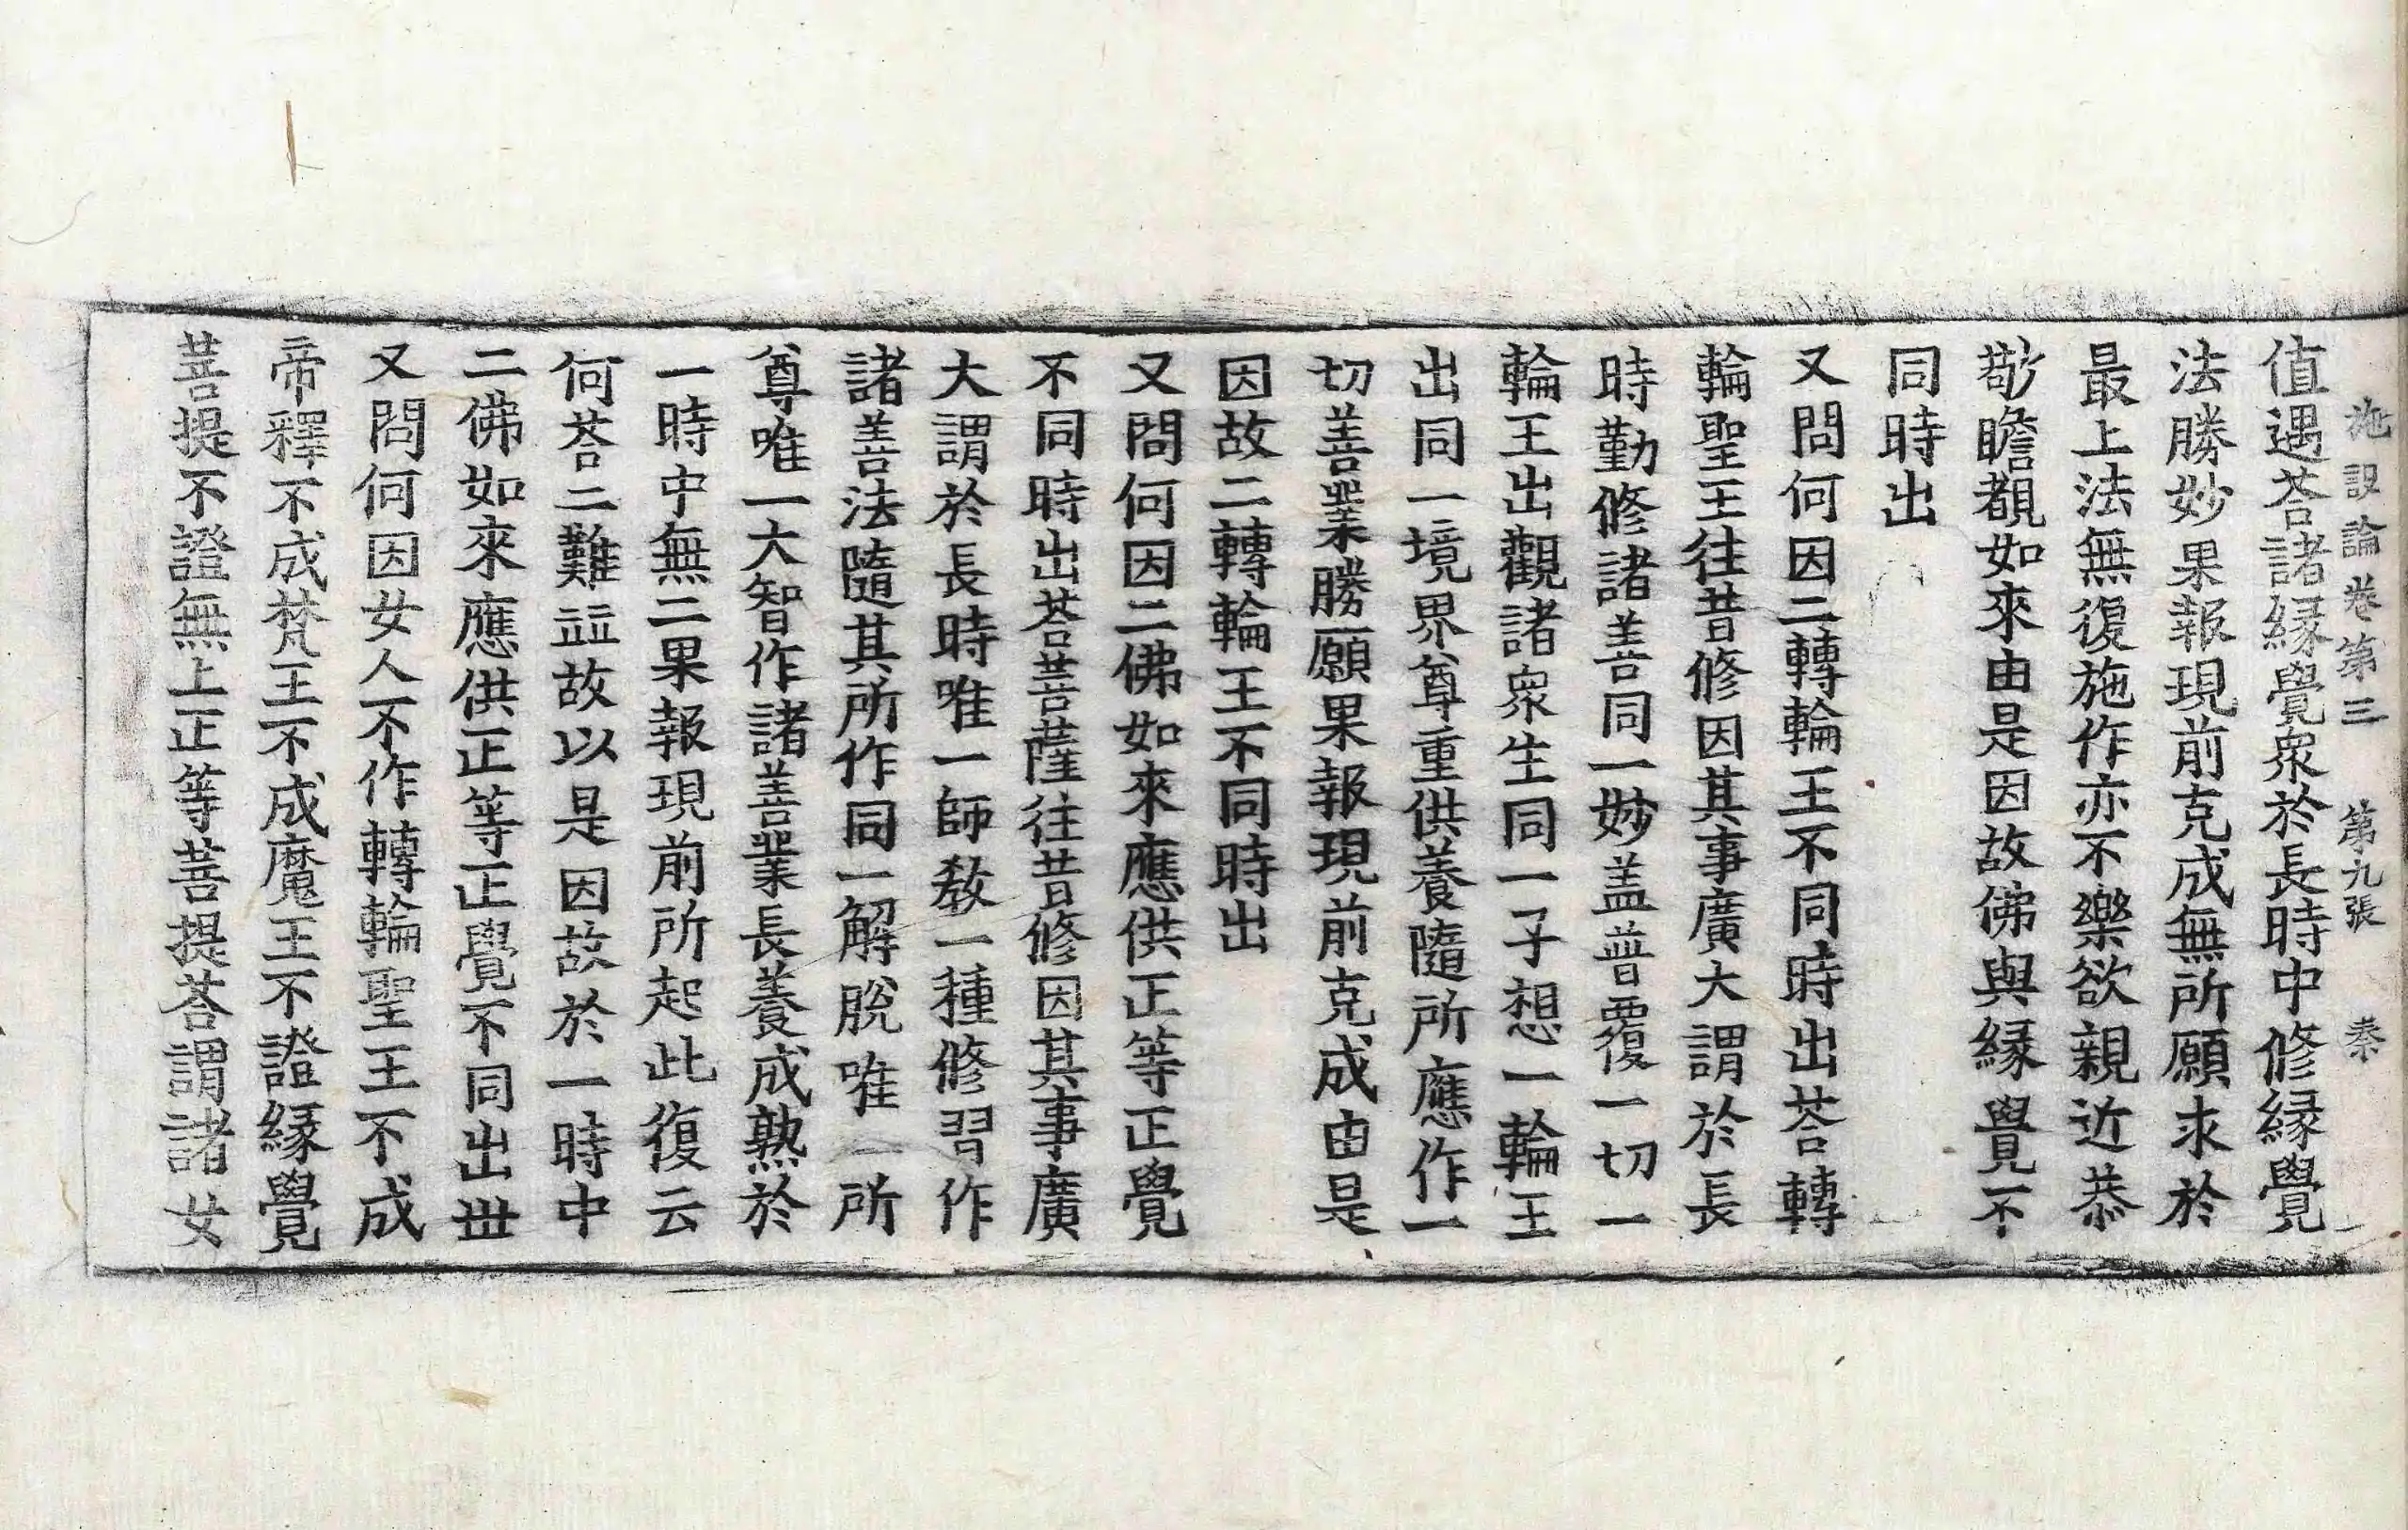 施設論卷第三　第九張　秦
值遇荅諸緣覺衆於長時中修緣覺
法勝妙果報現前克成無所願求於
最上法無復施作亦不樂欲親近恭
敬瞻覩如來由是因故佛與緣覺不
同時出
又問何因二轉輪王不同時出荅轉
輪聖王往昔修因其事廣大謂於長
時勤修諸善同一妙盖普覆一切一
輪王出觀諸衆生同一子想一輪王
出同一境界尊重供養隨所應作一
切善業勝願果報現前克成由是
因故二轉輪王不同時出
又問何因二佛如來應供正等正覺
不同時出荅菩薩往昔修因其事廣
大謂於長時唯一師教一種修習作
諸善法隨其所作同一解脫唯一所
尊唯一大智作諸善業長養成熟於
一時中無二果報現前所起此復云
何荅二難並故以是因故於一時中
二佛如來應供正等正覺不同出世
又問何因女人不作轉輪聖王不成
帝釋不成梵王不成魔王不證緣覺
菩提不證無上正等菩提荅謂諸女